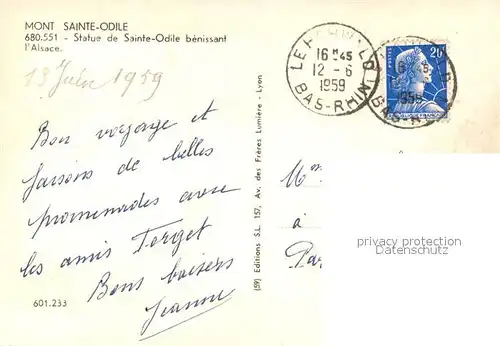 MONT SAINTE-ODILE
680.551 - Statue de Sainte-Odile bénissant
l'Alsace.
13 Juin 1959
Bon voyage et
faisons de belles
promenades avec
les amis Forget
Bons baisers
Jeanne
601.233
(59) Editions S.L. 157, Av. des Frères Lumière - Lyon
16 H45
12 - 6
1959
BAS-RHIN
POSTES
20F
Mme
à
Par
privacy protection
Datenschutz